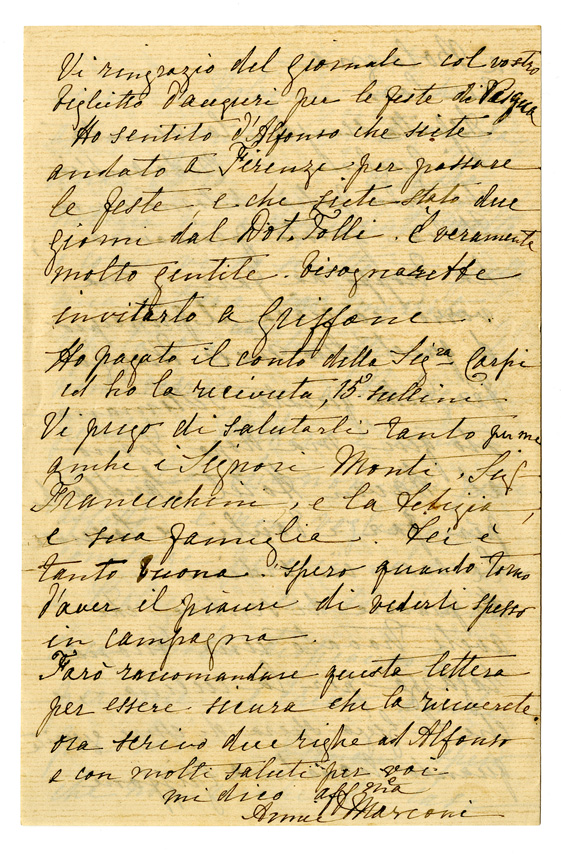 Vi ringrazio del giornale col vostro
biglietto d'auguri per le feste di Pasqua
Ho sentito d'Alfonso che siete
andato a Firenze per passare
le feste, e che siete stato due
giorni dal Dot. Tolli. È veramente
molto gentile. bisognarebbe
invitarlo a Griffone.
Ho pagato il conto della Sigra Carpi
ed ho la ricivuta, 15 sullini
Vi prego di salutarli tanto per me
anche i Signori Monti, Sig
Franceschini, e la Letizia,
e sua famiglia. Lei è
tanto buona. spero quando torno
d'aver il piacere di vederli spesso
in campagna.
Farò raccomandare questa lettera
per essere sicura che la riceverete.
ora scrivo due righe ad Alfonso
e con molti saluti per voi
mi dico affma
Annie Marconi